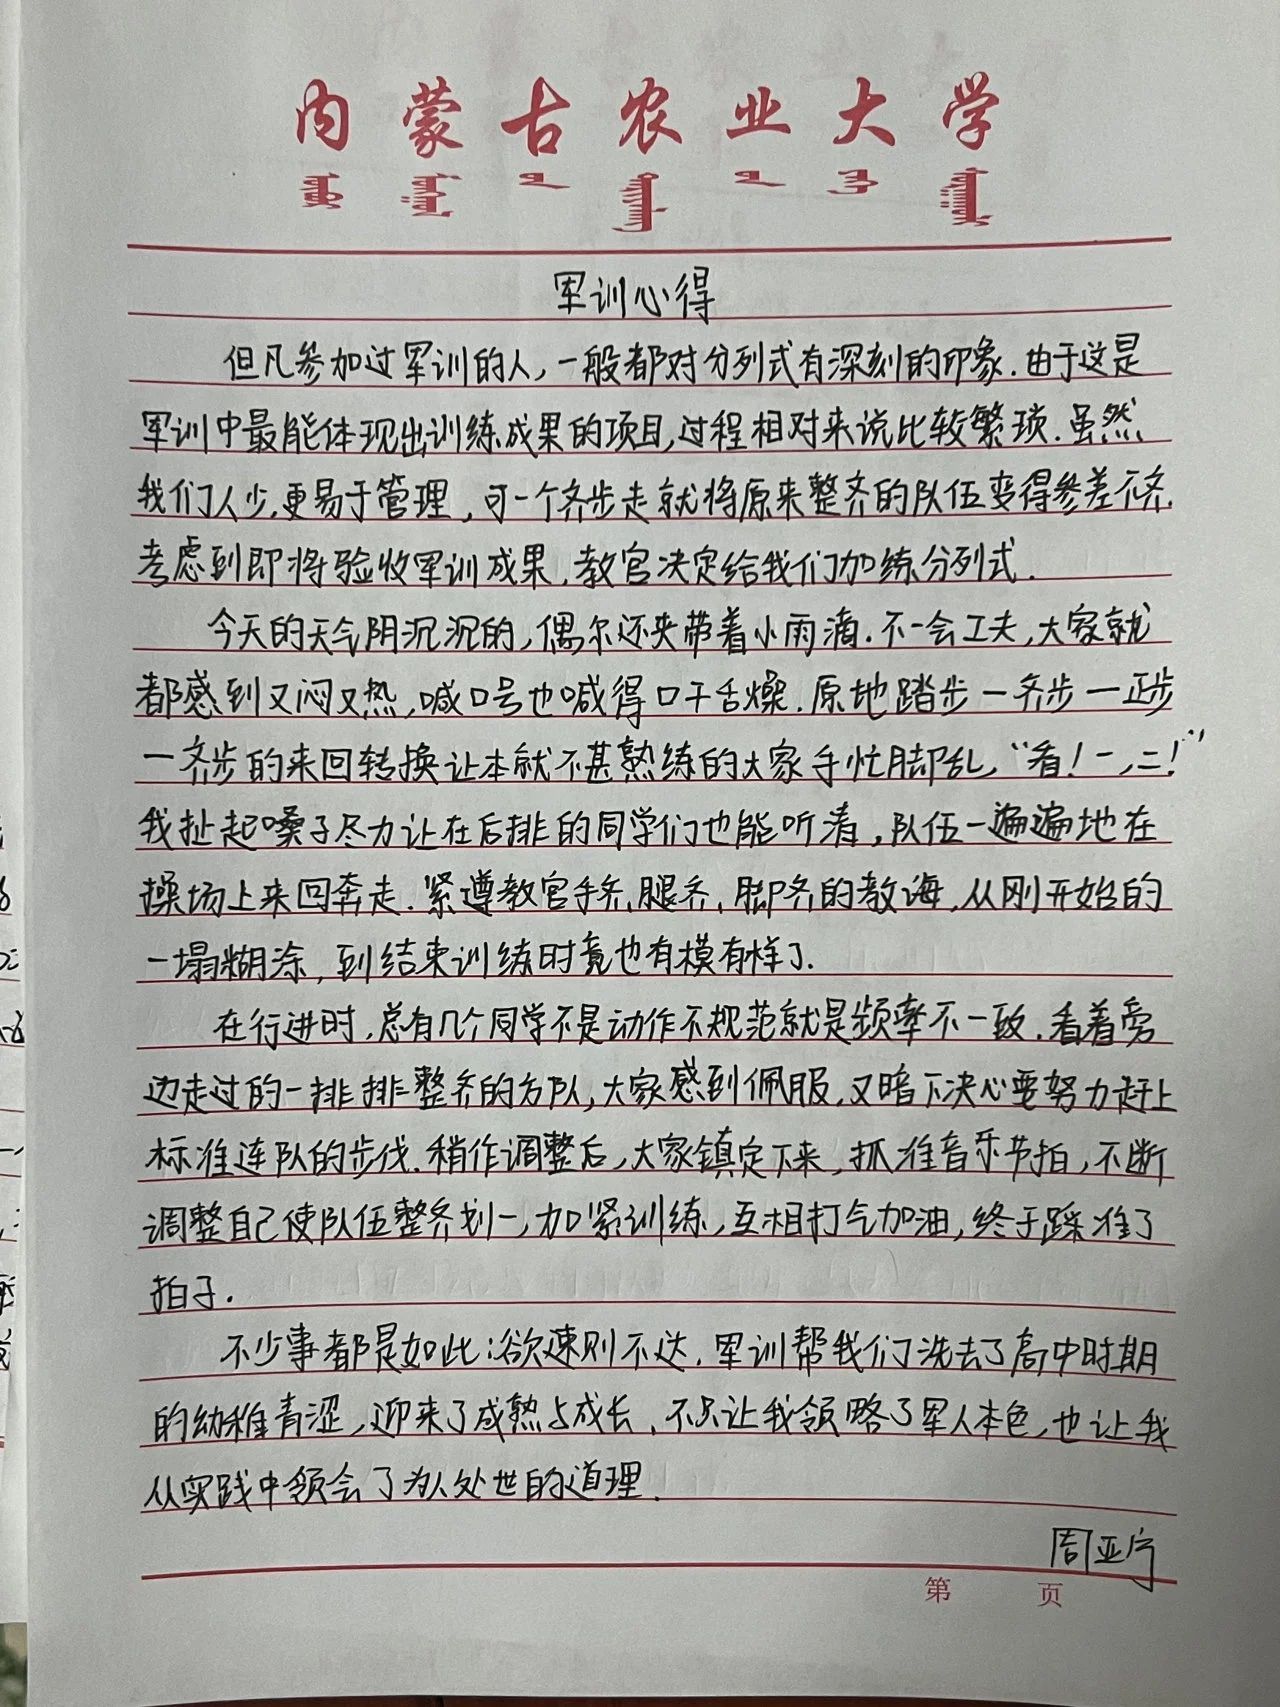 内蒙古农业大学
军训心得
但凡参加过军训的人,一般都对分列式有深刻的印象.由于这是
军训中最能体现出训练成果的项目,过程相对来说比较繁琐.虽然
我们人少,更易于管理,可一个齐步走就将原来整齐的队伍变得参差不齐.
考虑到即将验收军训成果,教官决定给我们加练分列式.
今天的天气阴沉沉的,偶尔还夹带着小雨滴.不一会工夫,大家就
都感到又闷又热,喊口号也喊得口干舌燥.原地踏步一齐步一正步
一齐步的来回转换让本就不甚熟练的大家手忙脚乱,“看!一,二!”
我扯起嗓子尽力让在后排的同学们也能听清,队伍一遍遍地在
操场上来回奔走.紧遵教官手齐、腿齐、脚齐的教诲,从刚开始的
一塌糊涂,到结束训练时竟也有模有样了.
在行进时,总有几个同学不是动作不规范就是频率不一致.看着旁
边走过的一排排整齐的方队,大家感到佩服,又暗下决心要努力赶上
标准连队的步伐.稍作调整后,大家镇定下来,抓准音乐节拍,不断
调整自己使队伍整齐划一,加紧训练,互相打气加油,终于踩准了
拍子.
不少事都是如此:欲速则不达.军训帮我们洗去了高中时期
的幼稚青涩,迎来了成熟与成长,不只让我领略了军人本色,也让我
从实践中领会了为人处世的道理.
周亚宁
第 页